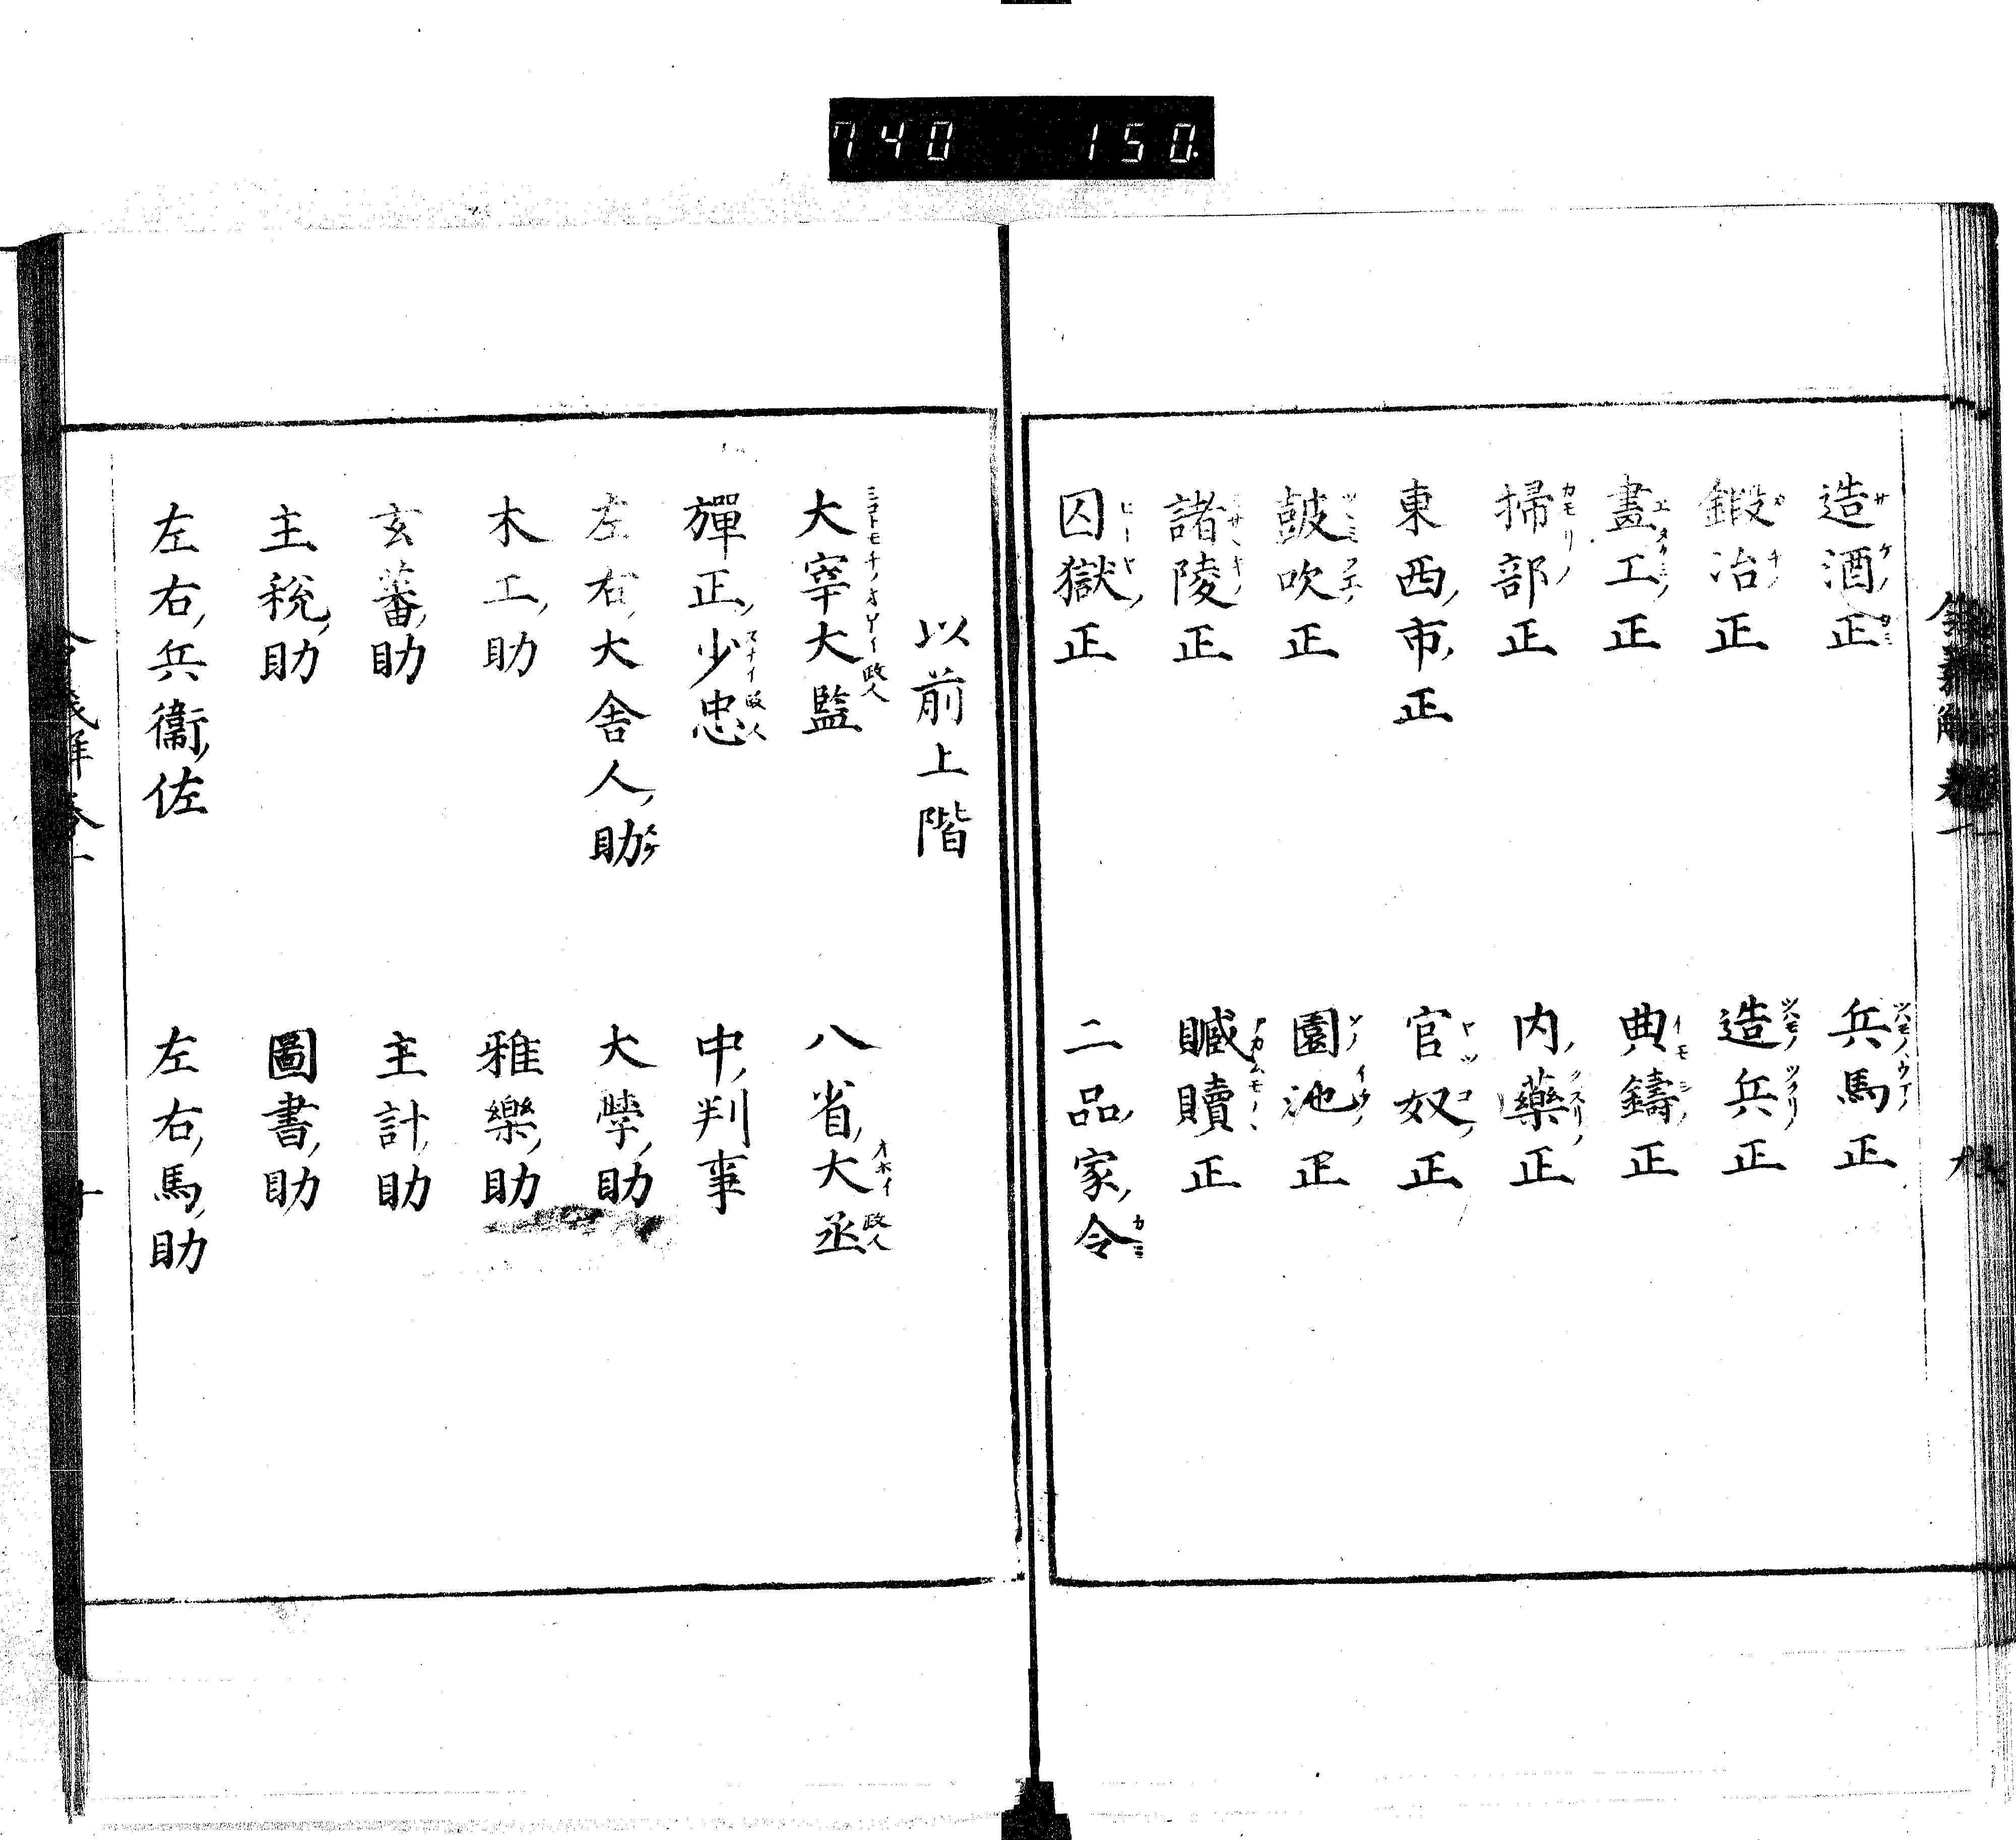 740 150.
造酒正 兵馬正
鍛冶正 造兵正
畫工正 典鑄正
掃部正 内藥正
東西市正 官奴正
鼓吹正 園池正
諸陵正 贓贖正
囚獄正 二品家令
以前上階
大宰大監 八省大丞
彈正少忠 中判事
左右大舎人助 大學助
木工助 雅樂助
玄蕃助 主計助
主税助 圖書助
左右兵衞佐 左右馬助